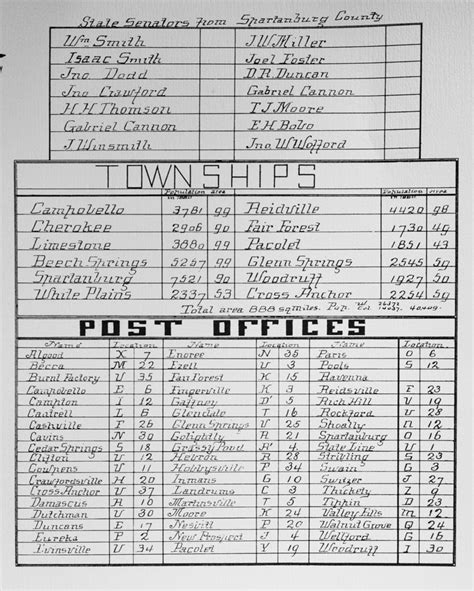 State Senators from Spartanburg County
Wm Smith J.W. Miller
Isaac Smith Joel Foster
Jno. Dodd D.R. Duncan
Jno Crawford Gabriel Cannon
H.H. Thomson T.J. Moore
Gabriel Cannon E.H. Bobo
J. Winsmith Jno. W. Wofford
TOWNSHIPS
Population Area Population Area
Campobello 3781 99 Reidville 4420 98
Cherokee 2906 90 Fair Forest 1730 49
Limestone 3880 99 Pacolet 1851 43
Beech Springs 5257 99 Glenn Springs 2545 59
Spartanburg 7521 90 Woodruff 1927 50
White Plains 2337 53 Cross Anchor 2254 59
Total area 888 sq miles. Pop. W. 26372 Col. 14037. 40409.
POST OFFICES
Name Location Name Location Name Location.
Algood X 7 Enoree N 35 Paris O 6
Becca M 22 Ezell V 3 Pools S 12
Burnt Factory V 35 Fair Forest K 15 Ravenna
Campobello E 6 Fingerville K 3 Reidsville F 23
Campton L 12 Gaffney D' 5 Rich Hill V 19
Cantrell L 6 Glendale T 16 Rockford V 28
Cashville F 26 Glenn Springs V 25 Shoally N 12
Cavins N 30 Golightly R 21 Spartanburg O 16
Cedar Springs S 18 Grassy Pond A' 4 State Line V 1
Clifton U 12 Hebron R 28 Stribling S 23
Cowpens V 11 Hobbysville P 34 Swain G 3
Crawfordsville H 20 Inmans G 10 Switzer J 27
Cross Anchor U 37 Landrums C 3 Thickety Z 9
Damascus R 10 Martinsville T 5 Tippin D 23
Dutchman U 30 Moore K 24 Valley Falls M 12
Duncans E 17 Nesbitt P 20 Walnut Grove Q 24
Eureka P 2 New Prospect J 5 Wellford G 16
Ivinsville U 34 Pacolet Y 19 Woodruff I 30